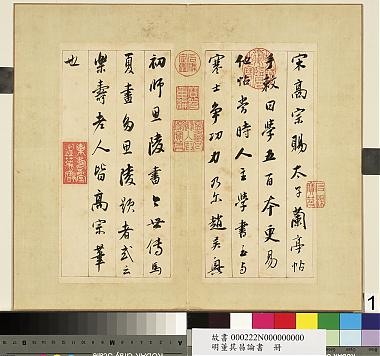 宋高宗賜太子蘭亭帖
手敕曰學五百本更易
他帖當時人主學書至與
寒士爭功力乃爾趙吳興
初師思陵書今世傳馬
夏畫多思陵題者或云
樂壽老人皆高宗筆
也
1
故書 000222N000000000
明董其昌論書 冊